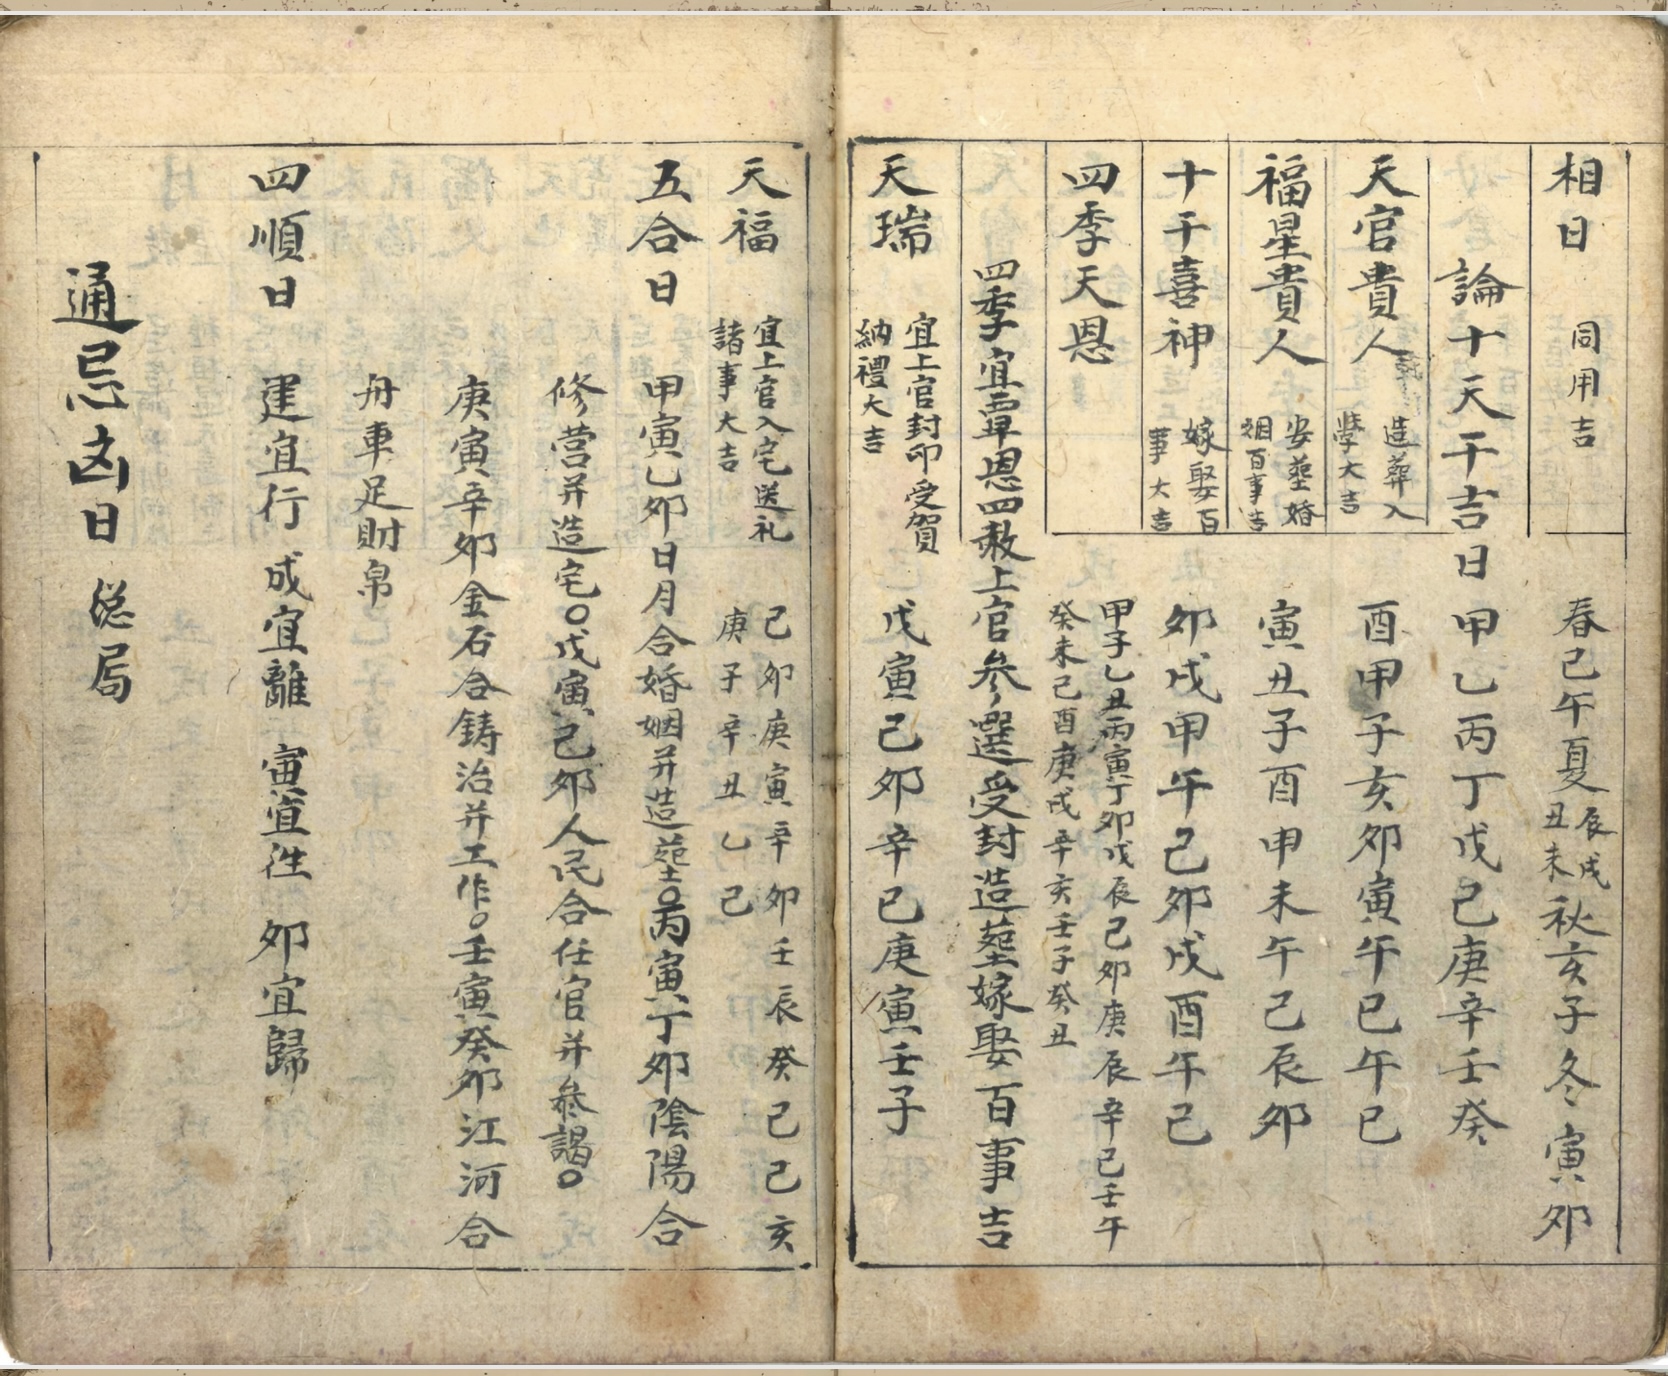 相日 同用吉 春己午夏辰戌丑未秋亥子冬寅卯
論十天干吉日 甲乙丙丁戊己庚辛壬癸
天官貴人 造葬入學大吉 酉甲子亥卯寅午巳午巳
福星貴人 安塟婚姻百事吉 寅丑子酉申未午己辰卯
十干喜神 嫁娶百事大吉 卯戌甲午己卯戌酉午己
四季天恩 甲子乙丑丙寅丁卯戊辰己卯庚辰辛巳壬午
癸未己酉庚戌辛亥壬子癸丑
四季宜覃恩四赦上官參選受封造塟嫁娶百事吉
天瑞 宜上官封印受賀納禮大吉 戊寅己卯辛巳庚寅壬子
天福 宜上官入宅送礼諸事大吉 己卯庚寅辛卯壬辰癸己己亥
庚子辛丑乙己
五合日 甲寅乙卯日月合婚姻并造塟○丙寅丁卯陰陽合
修営并造宅○戊寅己卯人民合任官并叅謁○
庚寅辛卯金石合鋳治并工作○壬寅癸卯江河合
舟車足財帛
四順日 建宜行 成宜離 寅宜徃 卯宜歸
通忌凶日 総局